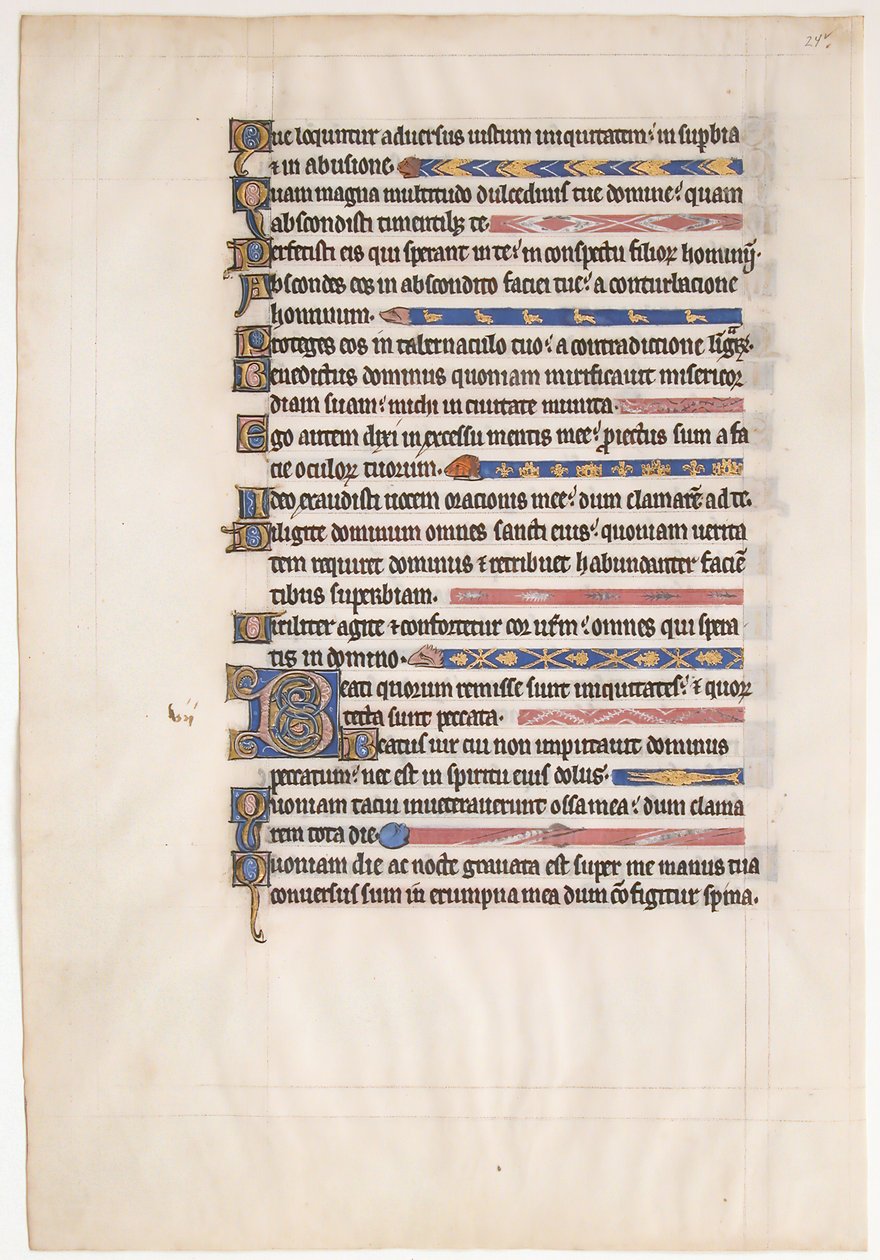 24v
Que loquuntur adversus iustum iniquitatem: in supbia
⁊ in abusione.
Quam magna multitudo dulcedinis tue domine: quam
abscondisti timentibꝫ te.
Perfecisti eis qui sperant in te: in conspectu filioꝝ hominū.
Abscondes eos in abscondito faciei tue: a conturbacione
hominum.
Proteges eos in tabernaculo tuo: a contradictione
Benedictus dominus quoniam mirificauit misericor
diam suam: michi in ciuitate munita.
Ego autem dixi in excessu mentis mee: ꝓiectus sum a fa
cie oculoꝝ tuorum.
Ideo exaudisti uocem oracionis mee: dum clamarē ad te.
Diligite dominum omnes sancti eius: quoniam uerita
tem requiret dominus ⁊ retribuet habundanter faciē
tibus superbiam.
Uiriliter agite ⁊ confortetur cor ur̄m: omnes qui spera
tis in domino.
Beati quorum remisse sunt iniquitates: ⁊ quoꝝ
tecta sunt peccata.
Beatus uir cui non imputauit dominus
peccatum: nec est in spiritu eius dolus.
Quoniam tacui inueterauerunt ossa mea: dum clama
rem tota die.
Quoniam die ac nocte grauata est super me manus tua
conuersus sum in erumpna mea dum cōfigitur spina.